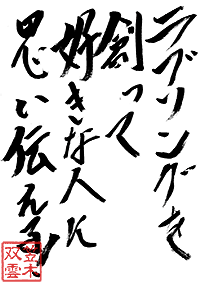 ラブリングを
創って
好きな人に
思い伝える